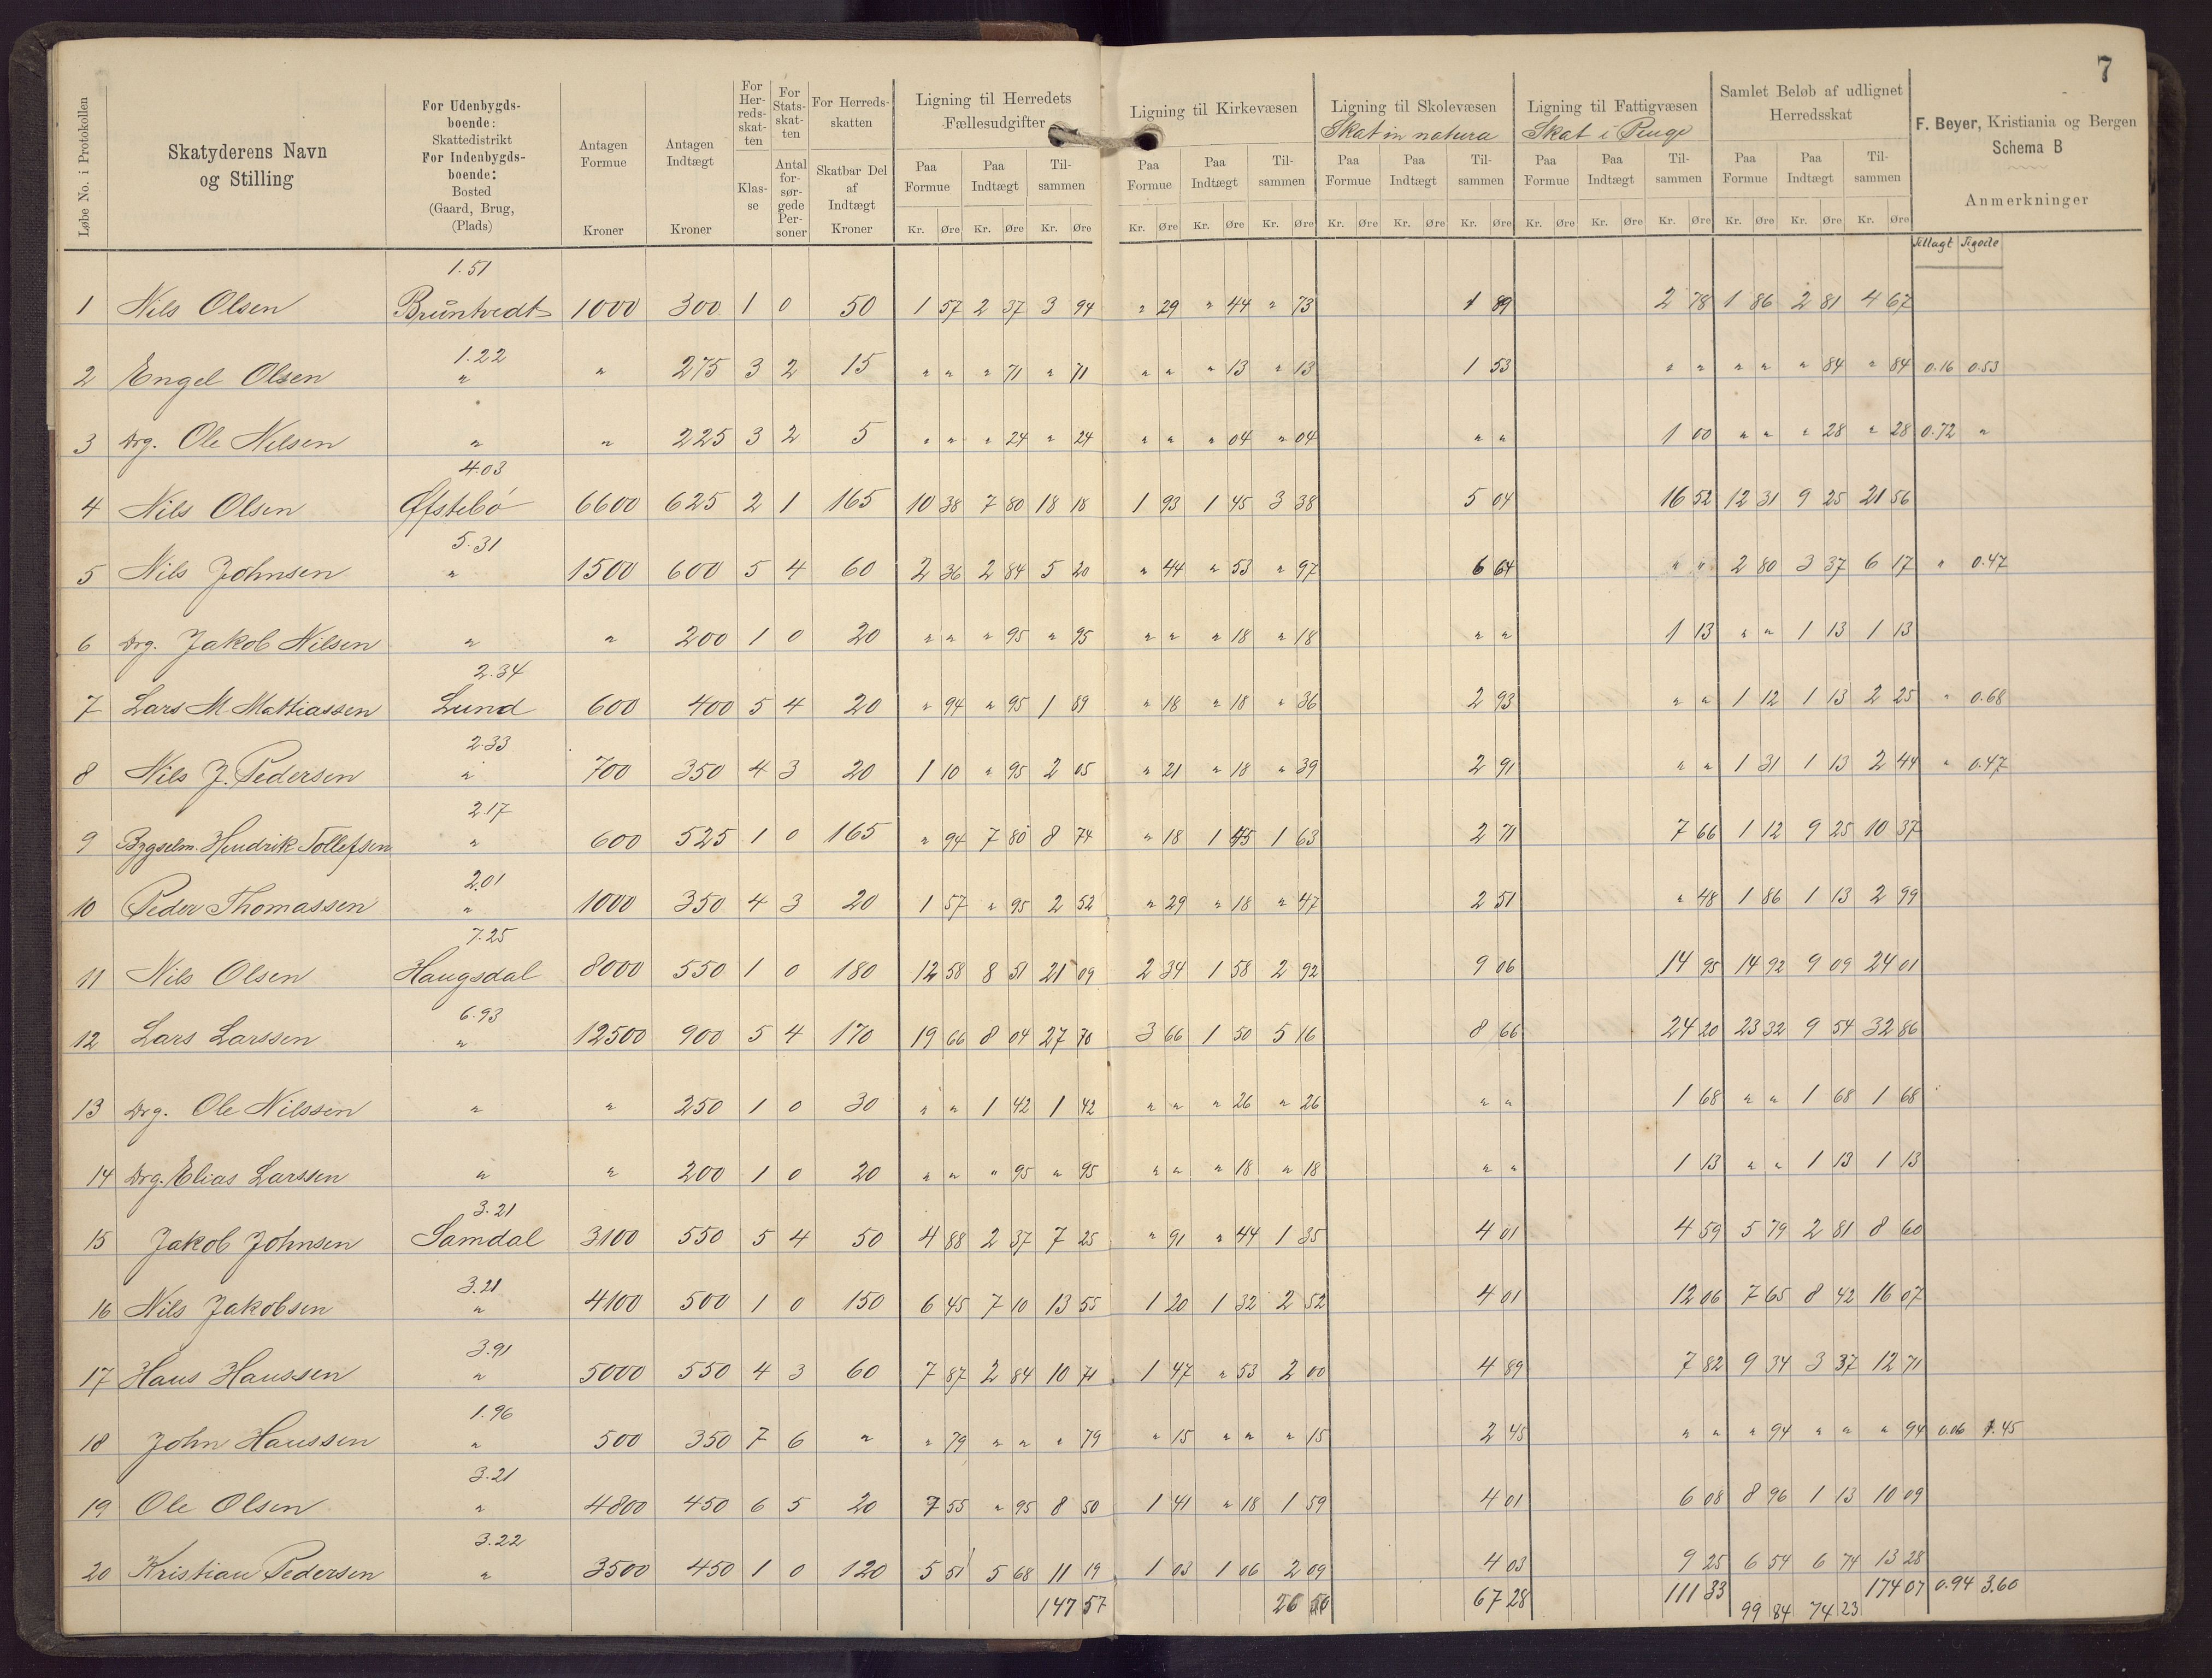 7
Løbe No. i Protokollen
Skatyderens Navn og Stilling
For Udenbygdsboende: Skattedistrikt For Indenbygdsboende: Bosted (Gaard, Brug, (Plads)
Antagen Formue Kroner
Antagen Indtægt Kroner
For Herredsskatten Klasse
For Statsskatten Antal forsørgede Personer
For Herredsskatten Skatbar Del af Indtægt Kroner
Ligning til Herredets Fællesudgifter
Paa Formue Paa Indtægt Tilsammen
Kr. Øre Kr. Øre Kr. Øre
Ligning til Kirkevæsen
Paa Formue Paa Indtægt Tilsammen
Kr. Øre Kr. Øre Kr. Øre
Ligning til Skolevæsen
Skat in natura
Paa Formue Paa Indtægt Tilsammen
Kr. Øre Kr. Øre Kr. Øre
Ligning til Fattigvæsen
Skat i Penge
Paa Formue Paa Indtægt Tilsammen
Kr. Øre Kr. Øre Kr. Øre
Samlet Beløb af udlignet Herredsskat
Paa Formue Paa Indtægt Tilsammen
Kr. Øre Kr. Øre Kr. Øre
F. Beyer, Kristiania og Bergen
Schema B
Anmerkninger
Tillagt Tilgode
1.51
1 Nils Olsen Bruntvedt 1000 300 1 0 50 1 57 2 37 3 94 " 29 " 44 " 73 1 89 2 78 1 86 2 81 4 67
1.22
2 Engel Olsen " " 275 3 2 15 " " " 71 " 71 " " " 13 " 13 1 53 " " " " " 84 " 84 0.16 0.53
3 Drg. Ole Nilsen " " 225 3 2 5 " " " 24 " 24 " " " 04 " 04 " " 1 00 " " " 28 " 28 0.72 "
4.03
4 Nils Olsen Øfstebö 6600 625 2 1 165 10 38 7 80 18 18 1 93 1 45 3 38 5 04 16 52 12 31 9 25 21 56
5.31
5 Nils Johnsen " 1500 600 5 4 60 2 36 2 84 5 20 " 44 " 53 " 97 6 64 " " 2 80 3 37 6 17 " 0.47
6 Drg. Jakob Nilsen " " 200 1 0 20 " " " 95 " 95 " " " 18 " 18 " " 1 13 " " 1 13 1 13
2.34
7 Lars M. Mattiassen Lund 600 400 5 4 20 " 94 " 95 1 89 " 18 " 18 " 36 2 93 " " 1 12 1 13 2 25 " 0.68
2.33
8 Nils J. Pedersen " 700 350 4 3 20 1 10 " 95 2 05 " 21 " 18 " 39 2 91 " " 1 31 1 13 2 44 " 0.47
2.17
9 Bygselm. Hendrik Tollefsen " 600 525 1 0 165 " 94 7 80 8 74 " 18 1 45 1 63 2 71 7 66 1 12 9 25 10 37
2.01
10 Peder Thomassen " 1000 350 4 3 20 1 57 " 95 2 52 " 29 " 18 " 47 2 51 " 48 1 86 1 13 2 99
7.25
11 Nils Olsen Haugsdal 8000 550 1 0 180 12 58 8 51 21 09 2 34 1 58 2 92 9 06 14 95 14 92 9 09 24 01
6.93
12 Lars Larssen " 12500 900 5 4 170 19 66 8 04 27 70 3 66 1 50 5 16 8 66 24 20 23 32 9 54 32 86
13 Drg. Ole Nilssen " " 250 1 0 30 " " 1 42 1 42 " " " 26 " 26 " " 1 68 " " 1 68 1 68
14 Drg. Elias Larssen " " 200 1 0 20 " " " 95 " 95 " " " 18 " 18 " " 1 13 " " 1 13 1 13
3.21
15 Jakob Johnsen Samdal 3100 550 5 4 50 4 88 2 37 7 25 " 91 " 44 1 35 4 01 4 59 5 79 2 81 8 60
3.21
16 Nils Jakobsen " 4100 500 1 0 150 6 45 7 10 13 55 1 20 1 32 2 52 4 01 12 06 7 65 8 42 16 07
3.91
17 Hans Hanssen " 5000 550 4 3 60 7 87 2 84 10 71 1 47 " 53 2 00 4 89 7 82 9 34 3 37 12 71
1.96
18 John Hanssen " 500 350 7 6 " " 79 " " " 79 " 15 " " " 15 2 45 " " " 94 " " " 94 0.06 1.45
3.21
19 Ole Olsen " 4800 450 6 5 20 7 55 " 95 8 50 1 41 " 18 1 59 4 01 6 08 8 96 1 13 10 09
3.22
20 Kristian Pedersen " 3500 450 1 0 120 5 51 5 68 11 19 1 03 1 06 2 09 4 03 9 25 6 54 6 74 13 28
147 57 26 50 67 28 111 33 99 84 74 23 174 07 0.94 3.60